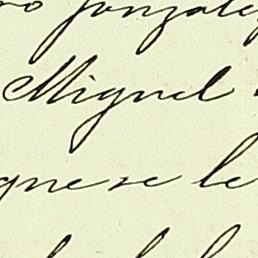 ro Gonzalez
Miguel
que se le